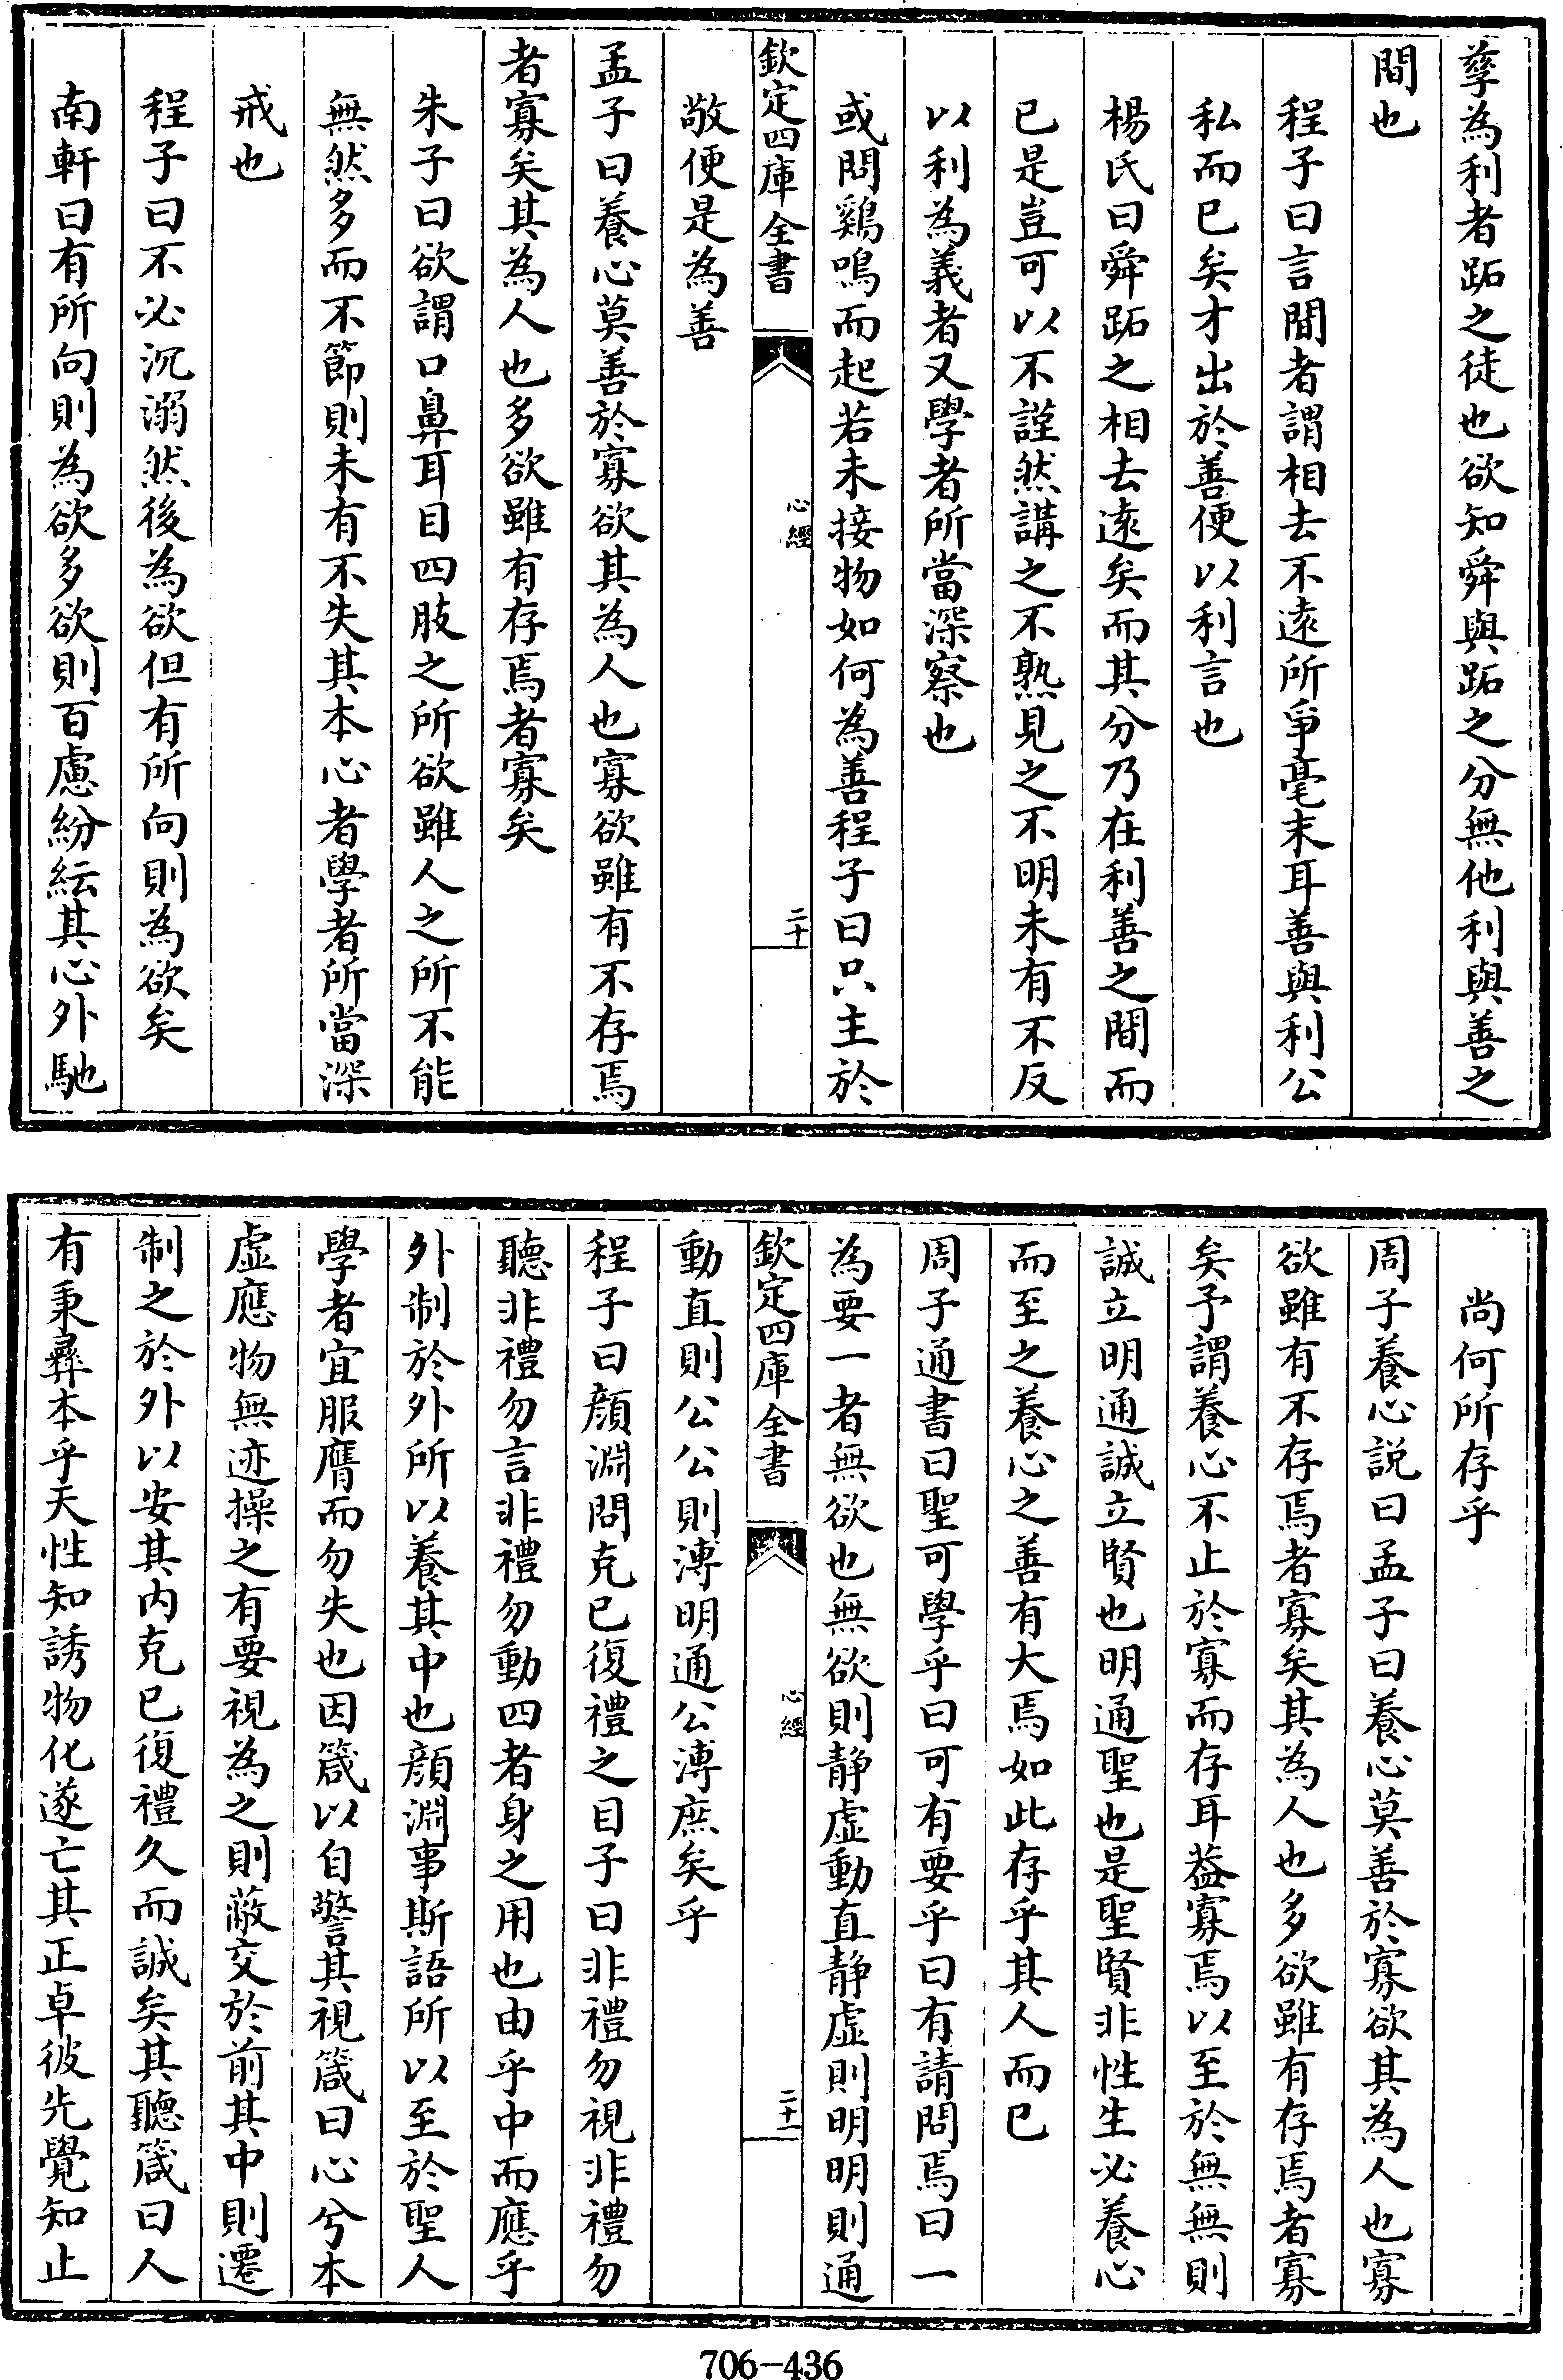 孳為利者跖之徒也欲知舜與跖之分無他利與善之
間也
程子曰言間者謂相去不遠所爭毫末耳善與利公
私而已矣才出於善便以利言也
楊氏曰舜跖之相去遠矣而其分乃在利善之間而
已是豈可以不謹然講之不熟見之不明未有不反
以利為義者又學者所當深察也
或問鷄鳴而起若未接物如何為善程子曰只主於
欽定四庫全書
心經
二十
敬便是為善
孟子曰養心莫善於寡欲其為人也寡欲雖有不存焉
者寡矣其為人也多欲雖有存焉者寡矣
朱子曰欲謂口鼻耳目四肢之所欲雖人之所不能
無然多而不節則未有不失其本心者學者所當深
戒也
程子曰不必沉溺然後為欲但有所向則為欲矣
南軒曰有所向則為欲多欲則百慮紛紜其心外馳
尚何所存乎
周子養心說曰孟子曰養心莫善於寡欲其為人也寡
欲雖有不存焉者寡矣其為人也多欲雖有存焉者寡
矣予謂養心不止於寡而存耳葢寡焉以至於無無則
誠立明通誠立賢也明通聖也是聖賢非性生必養心
而至之養心之善有大焉如此存乎其人而已
周子通書曰聖可學乎曰可有要乎曰有請問焉曰一
為要一者無欲也無欲則静虛動直静虛則明明則通
欽定四庫全書
心經
二十一
動直則公公則溥明通公溥庶矣乎
程子曰顔淵問克已復禮之目子曰非禮勿視非禮勿
聽非禮勿言非禮勿動四者身之用也由乎中而應乎
外制於外所以養其中也顔淵事斯語所以至於聖人
學者宜服膺而勿失也因箴以自警其視箴曰心兮本
虛應物無迹操之有要視為之則蔽交於前其中則遷
制之於外以安其内克已復禮久而誠矣其聽箴曰人
有秉彞本乎天性知誘物化遂亡其正卓彼先覺知止
706-436